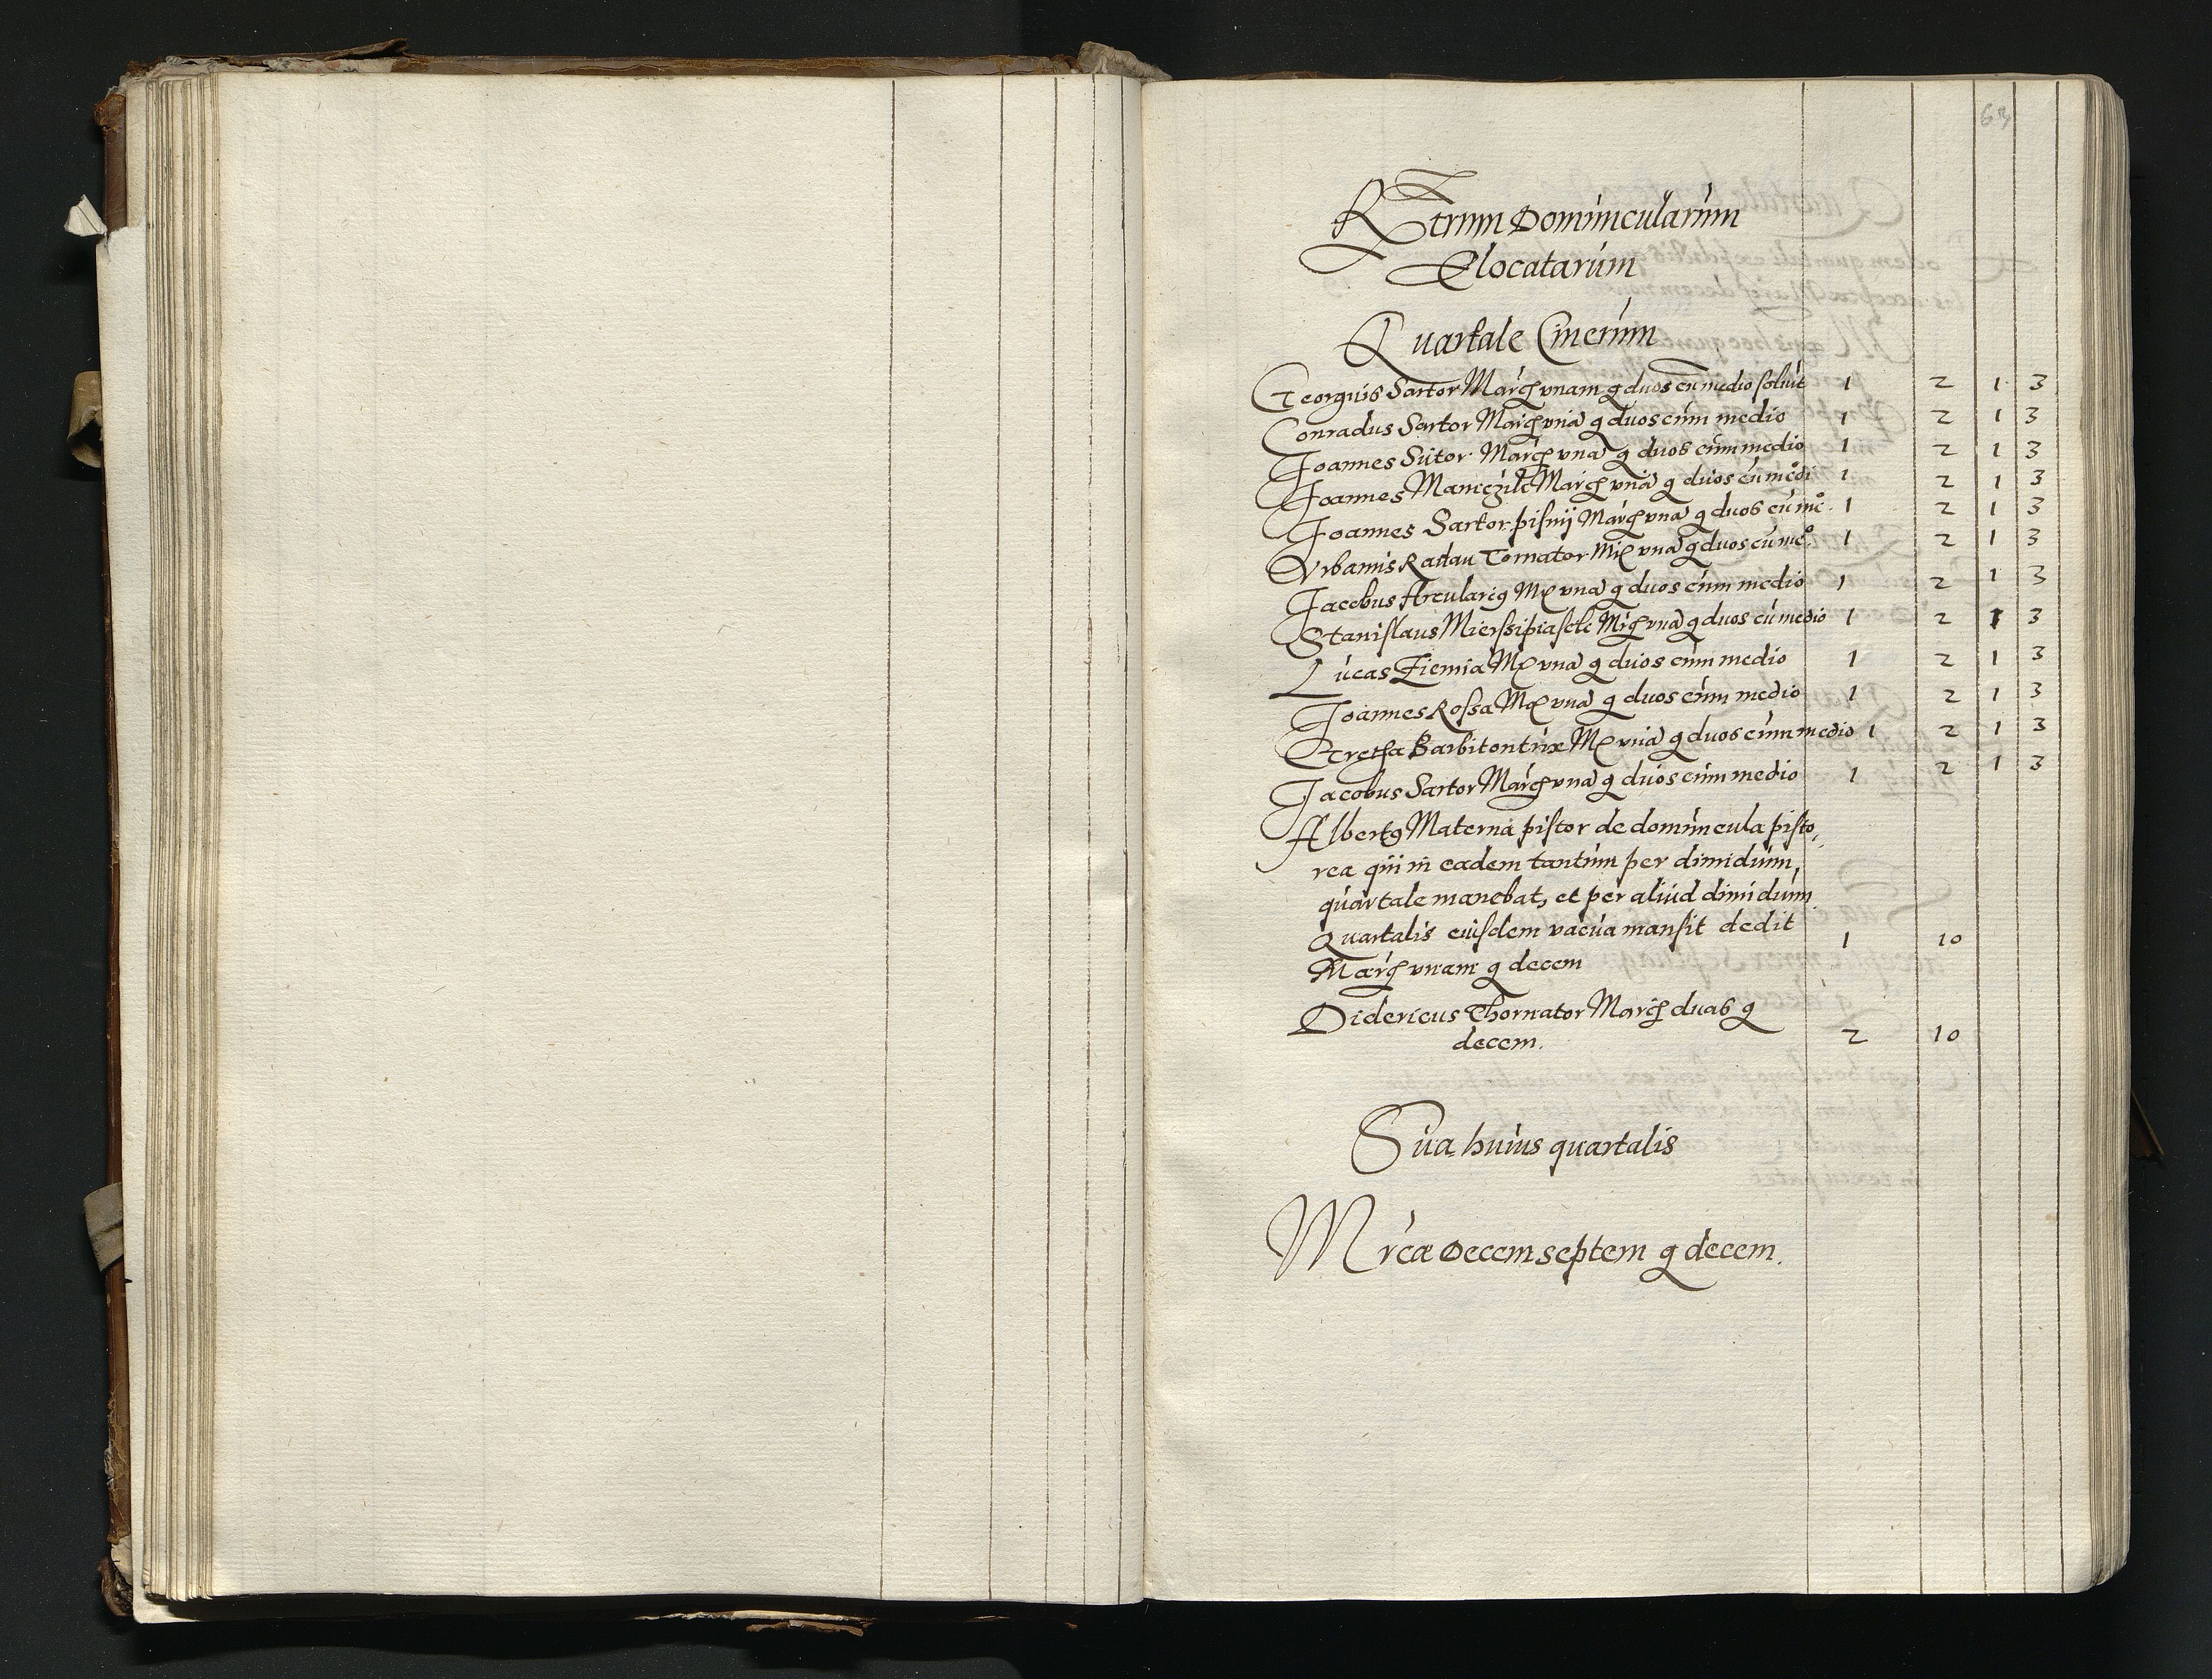 63
REtrnm Domuncularum
Elocatarum
Quartale Cinerum
Georgius Sartor March unam g duos cu medio soluit 1 2 1 3
Conradus Sartor March una g duos cum medio 1 2 1 3
Joannes Sutor March una g duos cum medio 1 2 1 3
Joannes March una g duos cu medi 1 2 1 3
Joannes Sartor pisnij March una g duos cu me 1 2 1 3
Urbanus Radau Tornator Mr una g duos cu me 1 2 1 3
Jacobus Arcularig Mr una g duos cum medio 1 2 1 3
Stanislaus Mierssipiasek Mrch una g duos cu medio 1 2 1 3
Lucas Ziemia Mr una g duos cum medio 1 2 1 3
Joannes Rossa Mr una g duos cum medio 1 2 1 3
Gretha Barbitontrix Mr una g duos cum medio 1 2 1 3
Jacobus Sartor March una g duos cum medio 1 2 1 3
Albertg Materna pistor de domuncula pisto,
rea qui in eadem tantum per dimidium
quartale manebat, et per aliud dimidium
Quartalis eiusdem vacua mansit dedit
March unam g decem 1 10
Didericus Thornator March duas g
decem. 2 10
Sua huius quartalis
Mrca Decem septem g decem.